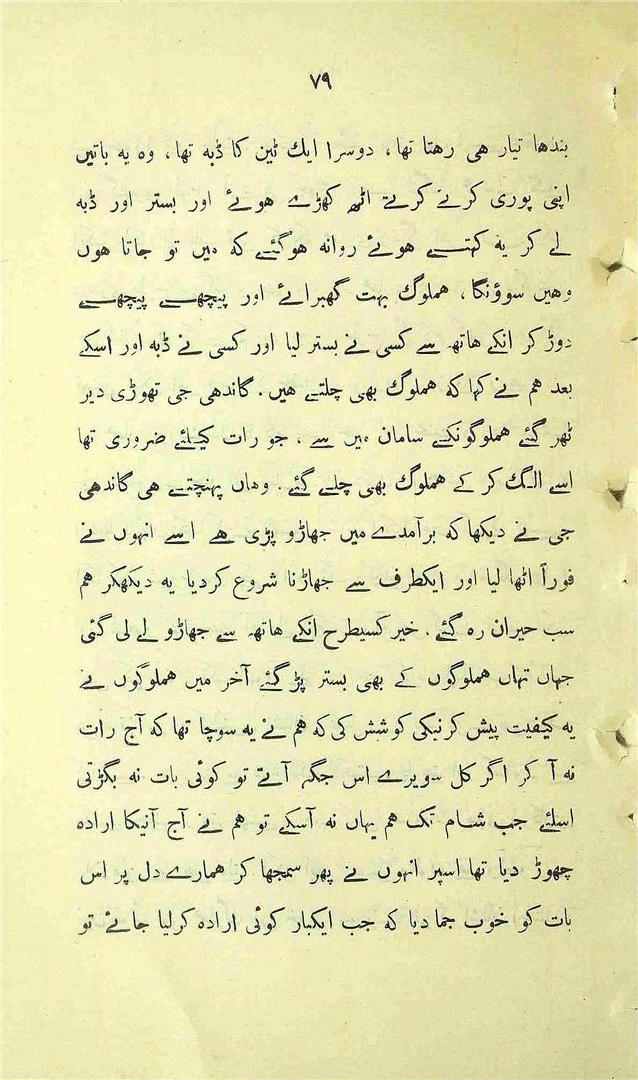 ۷۹
بندها تیار هی رهتا تها، دوسرا ایك ٹین کا ڈبه تها، وه یه باتیں
اپنی پوری کرنے کرتے اٹهه کهڑے هوئے اور بستر اور ڈبه
لے کر یه کہتے هوئے روانه هوگئے که میں تو جاتا هوں
وهیں سوؤنگا، هملوگ بہت گهبرائے اور پیچهے پیچهے
دوڑ کر انکے هاتهه سے کسی نے بستر لیا اور کسی نے ڈبه اور اسکے
بعد هم نے کہا که هملوگ بهی چلتے هیں۔ گاندهی جی تهوڑی دیر
ٹهر گئے هملوگونکے سامان میں سے ، جو رات کیلئے ضروری تها
اسے الگ کر کے هملوگ بهی چلے گئے۔ وهاں پہنچتے هی گاندهی
جی نے دیکها که برآمدے میں جهاڑو پڑی هے اسے انہوں نے
فوراً اٹها لیا اور ایکطرف سے جهاڑنا شروع کردیا یه دیکهکر هم
سب حیران ره گئے۔ خیر کسیطرح انکے هاتهه سے جهاڑو لے لی گئی
جہاں تہاں هملوگوں کے بهی بستر پڑ گئے آخر میں هملوگوں نے
یه کیفیت پیش کرنیکی کوشش کی که هم نے یه سوچا تها که آج رات
نه آ کر اگر کل سویرے اس جگہ آتے تو کوئی بات نه بگڑتی
اسلئے جب شام تک هم یہاں نه آسکے تو هم نے آج آنیکا اراده
چهوڑ دیا تها اسپر انہوں نے پهر سمجها کر همارے دل پر اس
بات کو خوب جما دیا که جب ایکبار کوئی اراده کرلیا جائے تو